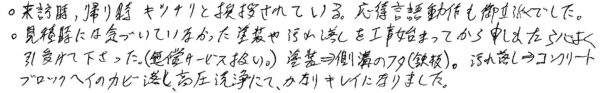 ○来訪時,帰り時 キッチリと挨拶されている。応待言語動作も御立派でした。
○見積時には気づいていなかった塗装や汚れ落しを工事始まってから申しましたら心よく
引受けて下さった。(無償サービス扱い。) 塗装⇒側溝のフタ(鉄板)。汚れ落し⇒コンクリート
ブロックヘイのカビ落し,高圧洗浄にて,かなりキレイになりました。